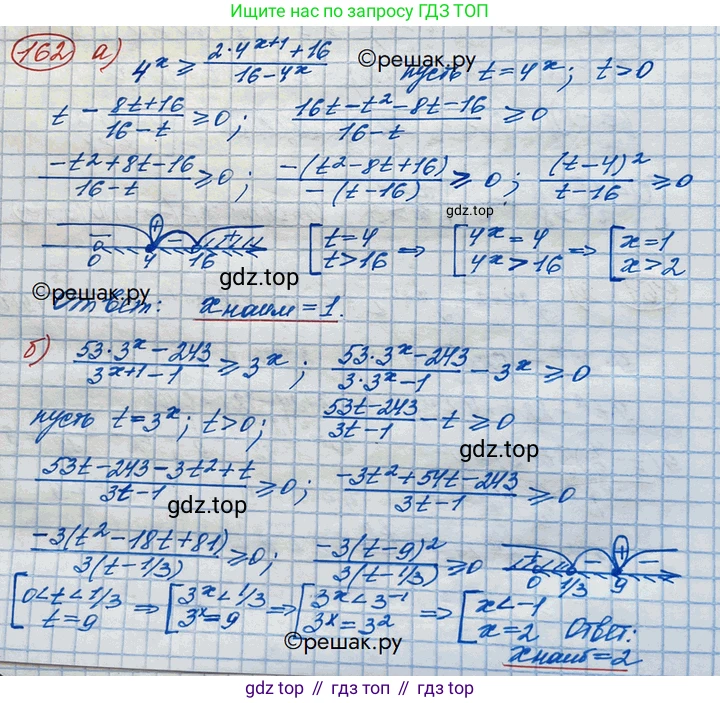 Ищите больше ГДЗ по запросу ГДЗ ТОП
162 а) 4^x ≥ (2·4^(x+1)+16)/(16-4^x) пусть t=4^x; t>0
©решак.ру
t - (8t+16)/(16-t) ≥ 0; (16t-t²-8t-16)/(16-t) ≥ 0
(-t²+8t-16)/(16-t) ≥ 0; (-(t²-8t+16))/(-(t-16)) ≥ 0; (t-4)²/(t-16) ≥ 0
gdz.top
- + - + 0 4 16 [t=4 t>16 ⇒ [4^x=4 4^x>16 ⇒ [x=1 x>2
gdz.top
©решак.ру
Ответ: x наим = 1.
б) (53·3^x-243)/(3^(x+1)-1) ≥ 3^x; (53·3^x-243)/(3·3^x-1) - 3^x ≥ 0
пусть t=3^x; t>0; (53t-243)/(3t-1) - t ≥ 0
©решак.ру
gdz.top
(53t-243-3t²+t)/(3t-1) ≥ 0; (-3t²+54t-243)/(3t-1) ≥ 0
gdz.top
(-3(t²-18t+81))/(3(t-1/3)) ≥ 0; (-3(t-9)²)/(3(t-1/3)) ≥ 0 + - + - 0 1/3 9
[0<t<1/3 t=9 ⇒ [3^x<1/3 3^x=9 ⇒ [3^x<3^-1 3^x=3² ⇒ [x<-1 x=2 Ответ:
©решак.ру
x наиб = 2
gdz top // гдз топ // гдз.top